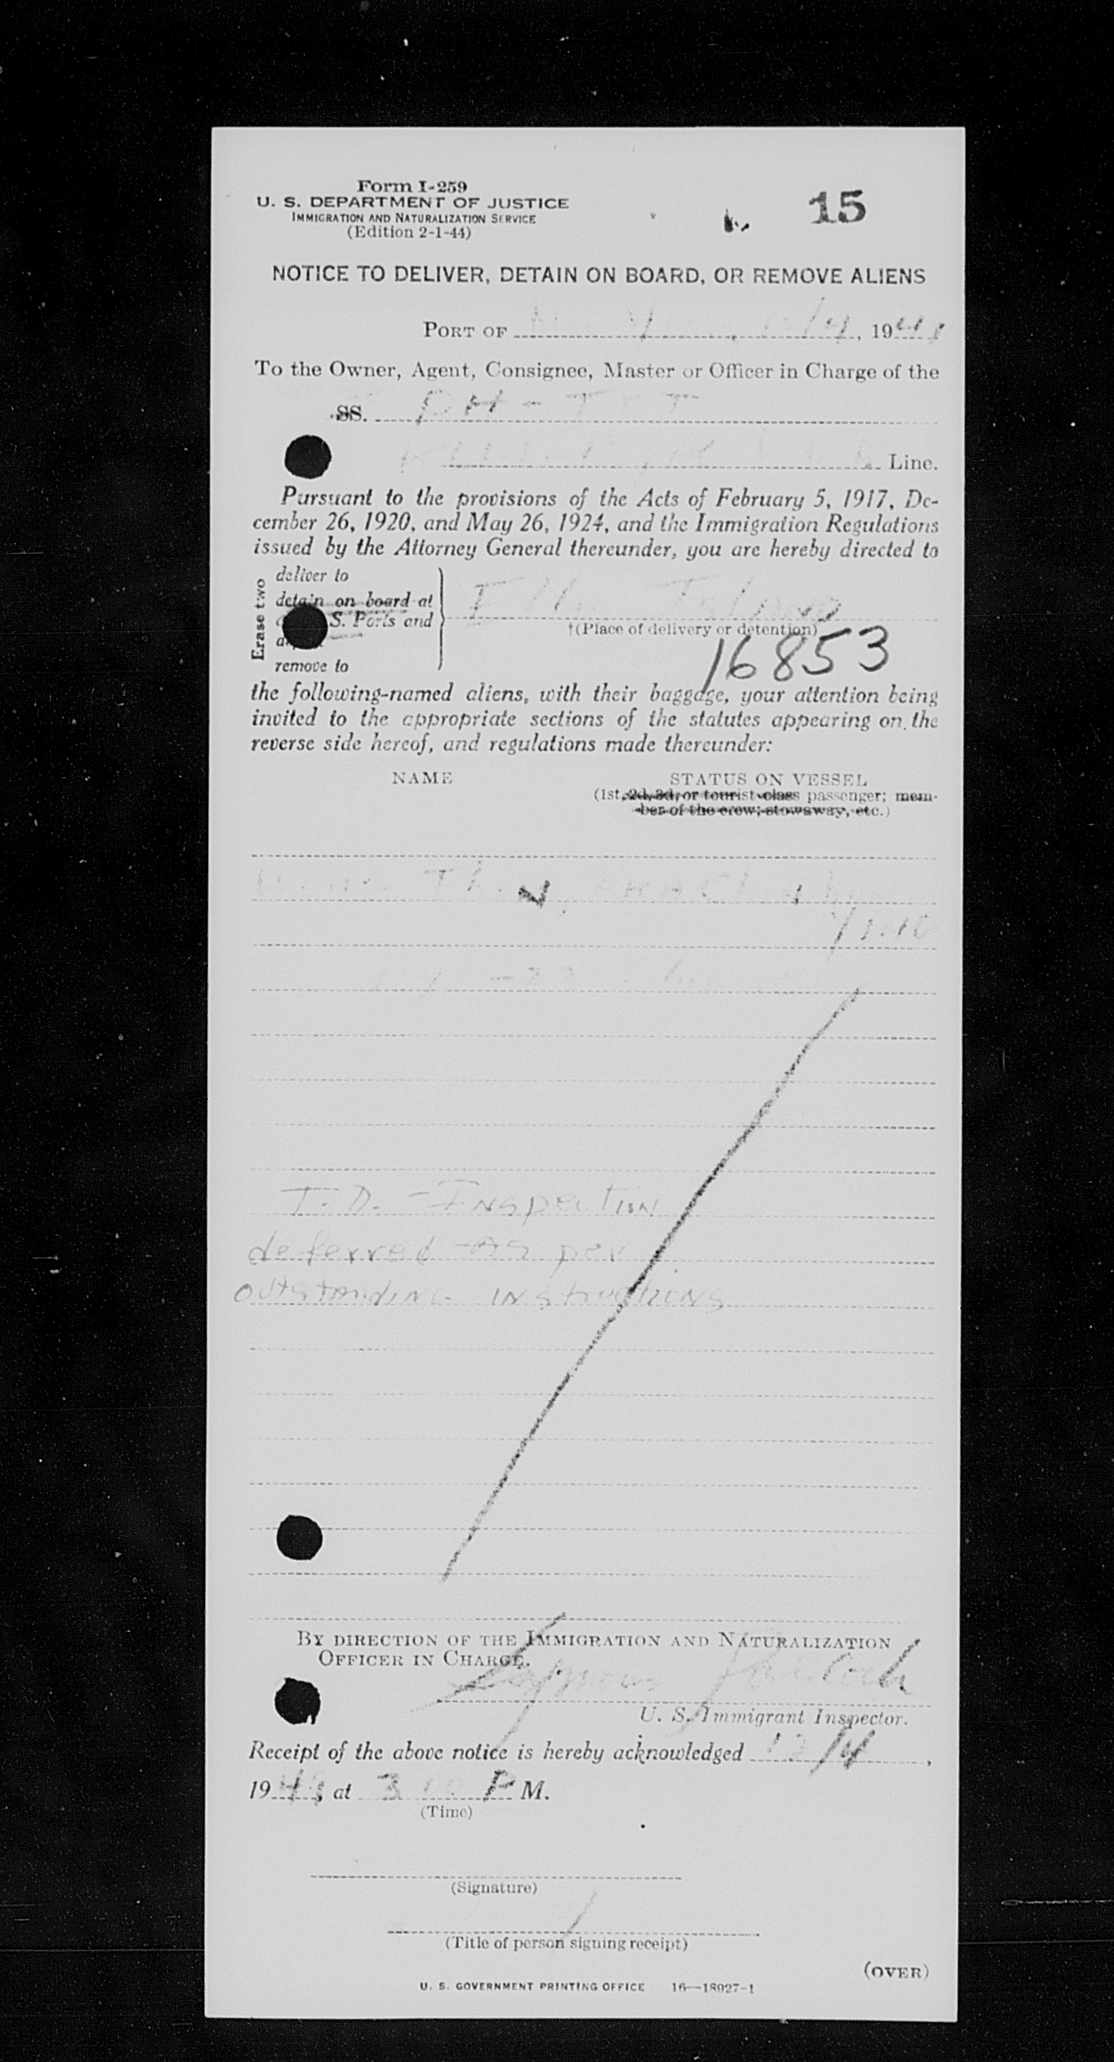 Form I-259
U. S. DEPARTMENT OF JUSTICE
IMMIGRATION AND NATURALIZATION SERVICE
(Edition 2-1-44)
15
NOTICE TO DELIVER, DETAIN ON BOARD, OR REMOVE ALIENS
PORT OF 12/4, 1948
To the Owner, Agent, Consignee, Master or Officer in Charge of the
SS. PH-
Line.
Pursuant to the provisions of the Acts of February 5, 1917, De-
cember 26, 1920, and May 26, 1924, and the Immigration Regulations
issued by the Attorney General thereunder, you are hereby directed to
Erase two
deliver to
detain on board at
S. Ports and
remove to
Ellis Island
†(Place of delivery or detention)
16853
the following-named aliens, with their baggage, your attention being
invited to the appropriate sections of the statutes appearing on the
reverse side hereof, and regulations made thereunder:
NAME
STATUS ON VESSEL
(1st, 2d, 3d, or tourist class passenger; mem-
ber of the crew; stowaway, etc.)
T. D. - Inspection
deferred - As per
outstanding instructions
BY DIRECTION OF THE IMMIGRATION AND NATURALIZATION
OFFICER IN CHARGE.
Seymour
U. S. Immigrant Inspector.
Receipt of the above notice is hereby acknowledged 12/4,
1948, at 3 00 P M.
(Time)
(Signature)
(Title of person signing receipt)
(OVER)
U. S. GOVERNMENT PRINTING OFFICE 16—18927-1